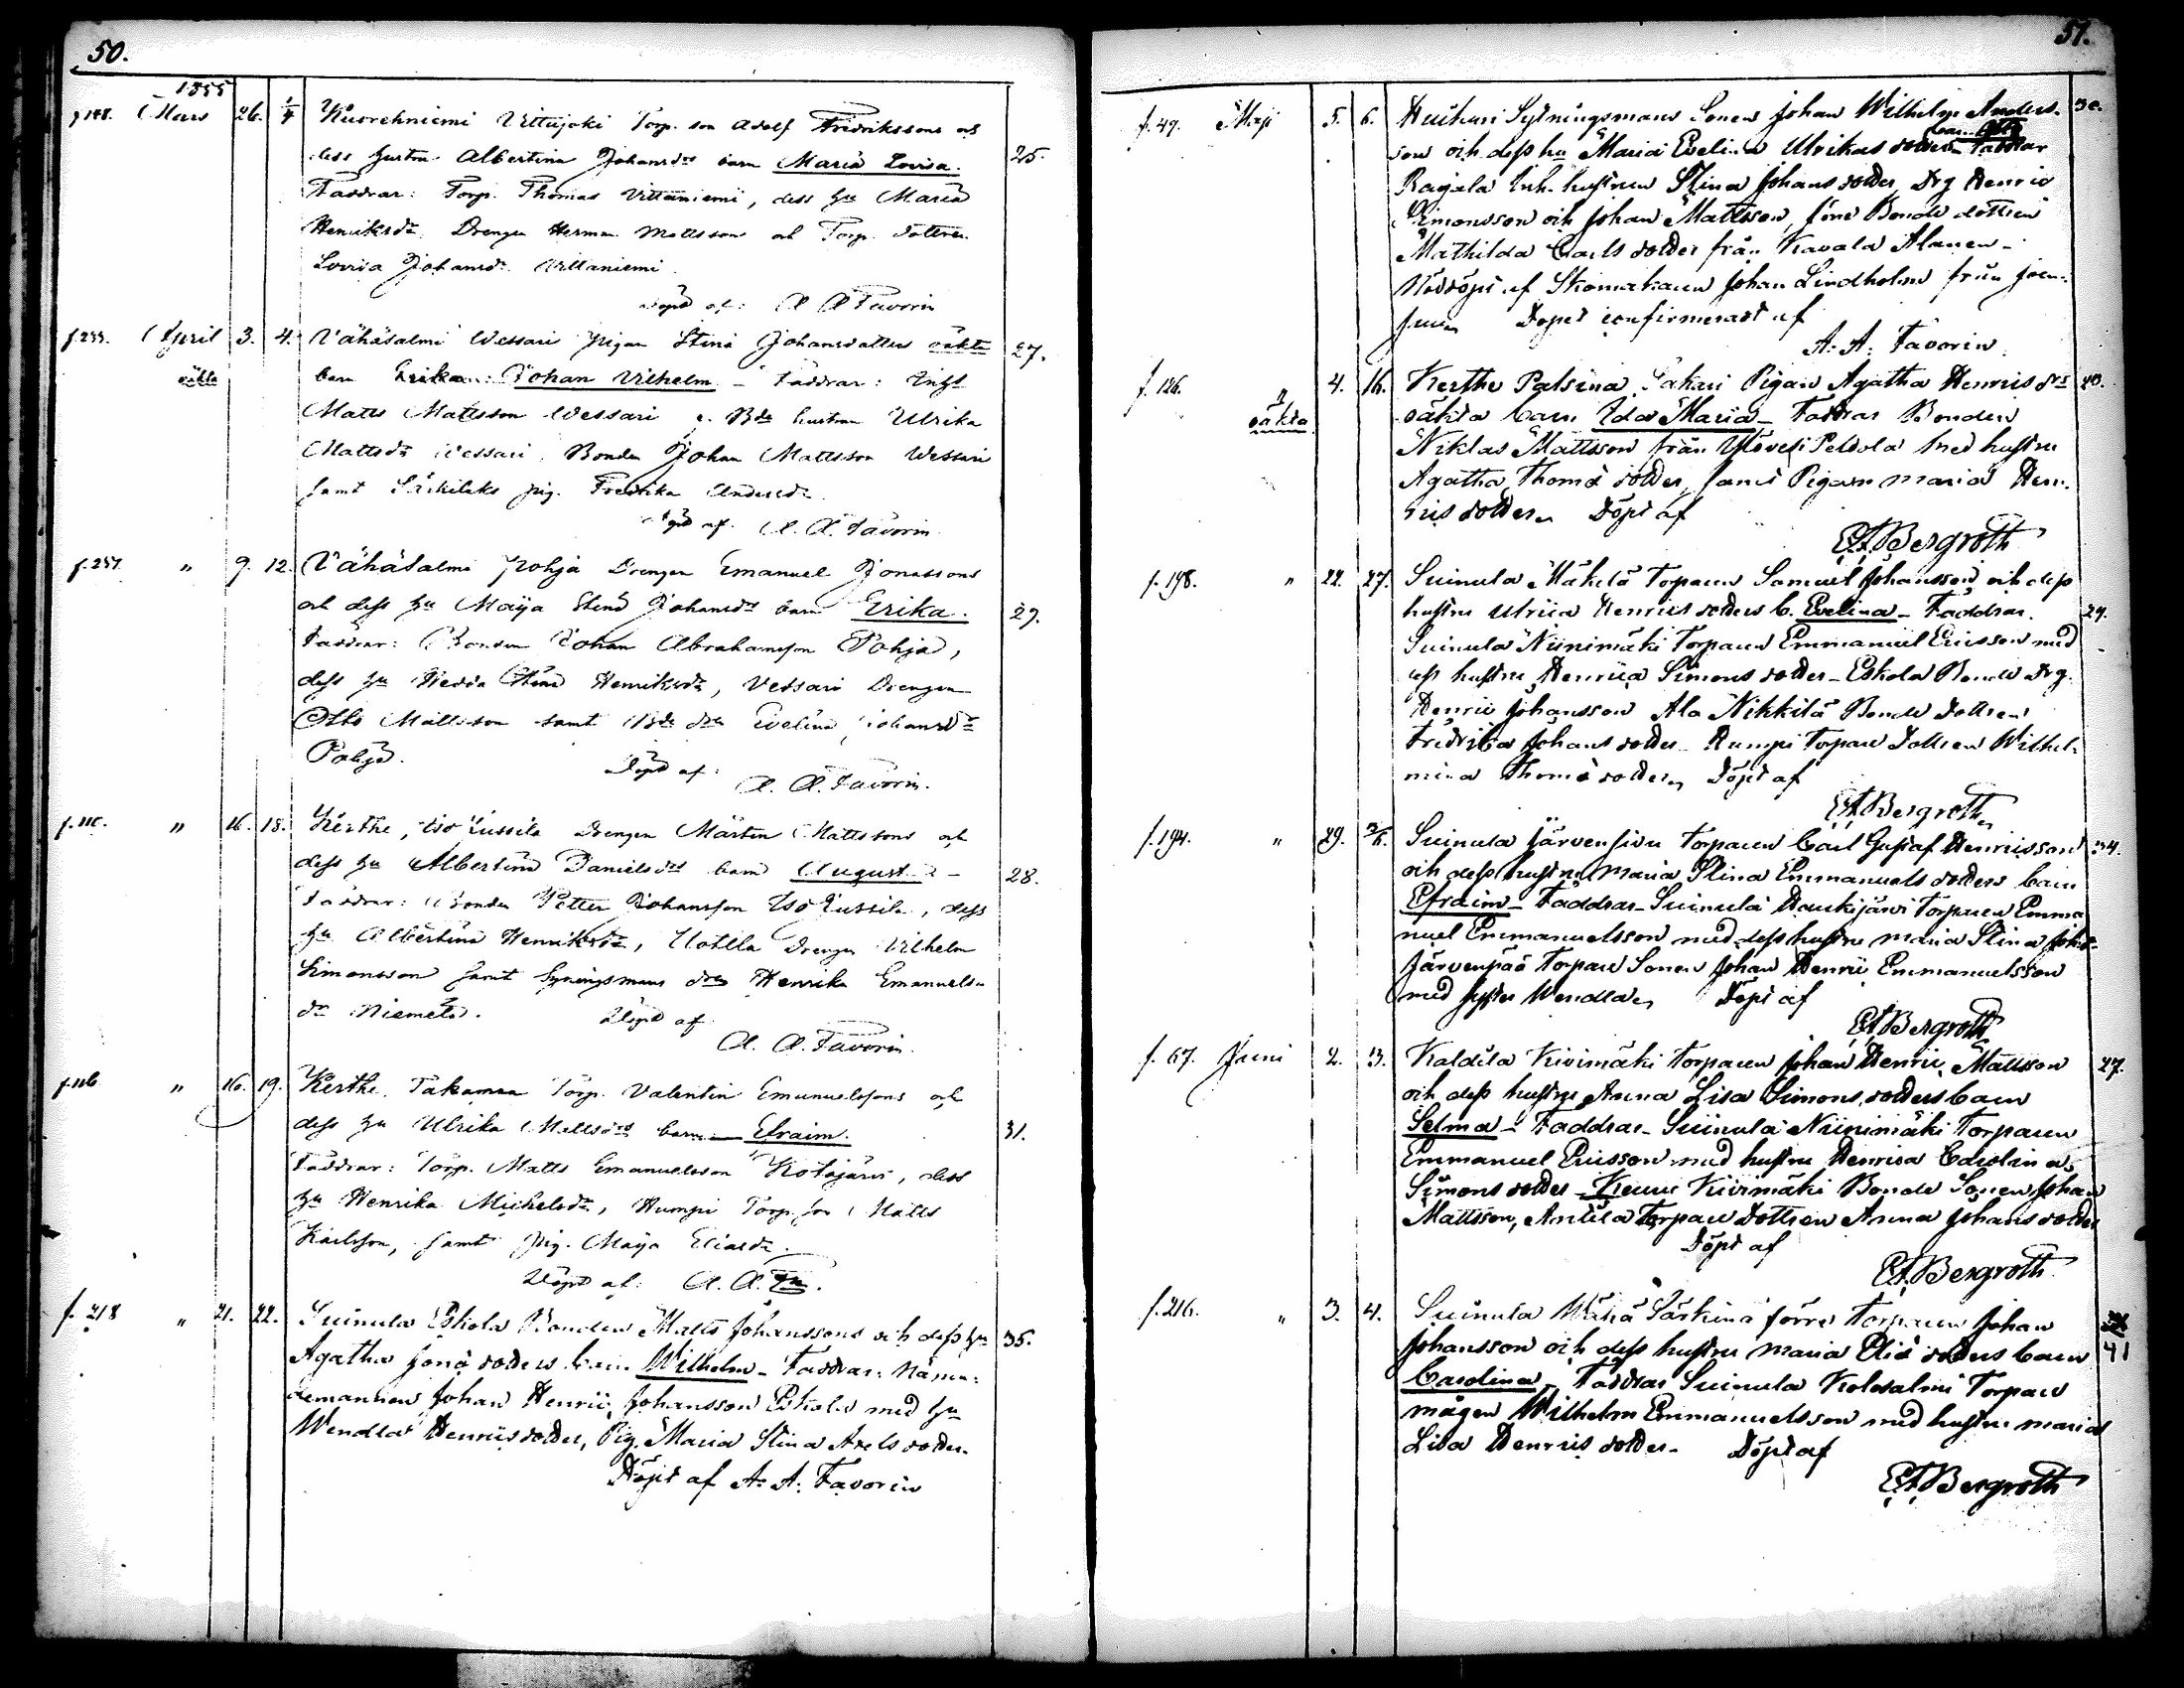 50.
1855
Mars 26. 1/4 Kuorehniemi Vittajoki Torp. son Adolf Fredrikssons och
dess hustru Albertina Johansdrs barn Maria Lovisa. 25.
Faddrar: Torp. Thomas Vittaniemi, dess hu Maria
Henriksdr. Drengen Herman Mattsson och Torp. dottren
Lovisa Johansdr Vittaniemi
Döpt af: A. A. Favorin
f. 233. April 3. 4. Vähäsalmi Wessari pigan Stina Johansdotters oäkta 27.
oäkta barn Johan Vilhelm – Faddrar: Inhs
Matts Mattsson Wessari, Bde hustrun Ulrika
Mattsdr Wessari, Bonden Johan Mattsson Wessari
samt pig. Fredrika Andersdr
Döpt af. A. A. Favorin.
f. 237. " 9. 12. Vähäsalmi Pohja Drengen Emanuel Jonassons
och dess hu Maija Stina Johansdrs barn Erika. 29.
Faddrar: Bonden Johan Abrahamsson Pohja,
dess hu Hedda Stina Henriksdr, Vessari Drengen
Otto Mattsson samt Bde drn Evelina Johansdr
Pohja. Döpt af:
A. A. Favorin.
f. 110. " 16. 18. Kerthe, Iso Eussila Drengen Mårten Mattssons och
dess hu Albertina Danielsdrs barn August – 28.
Faddrar: Bonden Petter Johansson Iso Eussila, dess
hu Albertina Henriksdr, Uotila Drengen Vilhelm
Simonsson samt Sytningsmans drn Henrika Emanuels
dr Niemelä. Döpt af
A. A. Favorin.
f. 116 " 16. 19. Kerthe. Takamaa Torp. Valentin Emanuelssons och
dess hu Ulrika Mattsdrs barn – Efraim. 31.
Faddrar: Torp. Matts Emanuelsson Kotojärvi, dess
hu Henrika Michelsdr, Humpi Torp. son Matts
Karlsson, samt pig. Maija Eliasdr.
Döpt af: A. A. Fn.
f. 218 " 21. 22. Suinula Eskola Bonden Matts Johanssons och dess hu 35.
Agatha Jonæ dotters barn Wilhelm – Faddrar: Näm-
demannen Johan Henric Johansson Eskola med hu
Wendla Henrics dotter, Pig. Maria Stina Axels dotter.
Döpt af A. A. Favorin
51.
f. 49. Maji 5. 6. Huihari Sytningsmans Sonen Johan Wilhelm Anders- 30.
son och dess hu Maria Evelina Ulrikas dotters barn Otto Faddrar
Ragala Inh. hustrun Stina Johans dotter, Drg Henric
Simonsson och Johan Mattsson, förre Bonde dottren
Mathilda Carls dotter från Kavala Alanen –
Nöddöpt af Skomakaren Johan Lindholm från
Dopet confirmeradt af
A. A. Favorin.
f. 126. " 4. 16. Kerthe Palsina Sakari Pigan Agatha Henricsdrs 20.
oäkta oäkta barn Ida Maria – Faddrar Bonden
Niklas Mattsson från Ylövesi Peldola med hustru
Agatha Thomæ dotter, samt Pigan Maria Hen-
rics dotter Döpt af
E A Bergroth
f. 198. " 22. 27. Suinula Mäkilä Torparen Samuel Johansson och dess
hustru Ulrica Henrics dotters b. Evelina – Faddrar. 29.
Suinula Niinimäki Torparen Emmanuel Ericsson med
dess hustru Henrica Simons dotter – Eskola Bonde Drg.
Henric Johansson Ala Nikkilä Bonde dottren
Fredrika Johans dotter – Rumpi Torpare Dottren Wilhel-
mina Thomæ dotter, Döpt af
E A Bergroth
f. 194. " 29. 3/6. Suinula Järvensivu Torparen Carl Gustaf Henricsson 34.
och dess hustru Maria Stina Emmanuels dotters barn
Efraim – Faddrar – Suinula Haukijärvi Torparen Emma
nuel Emmanuelsson med dess hustru Maria Stina Johsdr
Järvenpää Torpare Sonen Johan Henric Emmanuelsson
med syster Wendla Döpt af
E A Bergroth
f. 67. Juni 2. 3. Kaldila Kivimäki Torparen Johan Henric Mattsson 27.
och dess hustru Anna Lisa Simons dotters barn
Selma – Faddrar – Suinula Niinimäki Torparen
Emmanuel Ericsson med hustru Henrica Carolina
Simons dotter – Kivimäki Bonde Sonen Johan
Mattsson, Anttila Torpare Dottren Anna Johans dotter
Döpt af
E A Bergroth
f. 216. " 3. 4. Suinula Wähä Särkinä förre Torparen Johan
Johansson och dess hustru Maria Eliæ dotters barn 41
Carolina – Faddrar Suinula Kolosalmi Torpare
mågen Wilhelm Emmanuelsson med hustru Maria
Lisa Henrics dotter – Döpt af
E A Bergroth